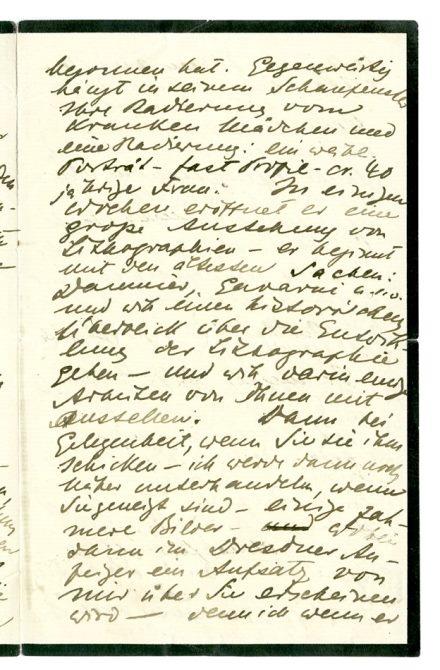 begonnen hat. Gegenwärtig
hängt in seinem Schaufenster
Ihre Radierung vom
Kranken Mädchen und
eine Radierung: ein weibl.
Porträt – fast Profil – cr. 40
jährige Frau. In einigen
Wochen eröffnet er eine
große Ausstellung von
Lithographien – er beginnt
mit den ältesten Sachen:
Daumier, Gavarni u.s.w.
und will einen historischen
Überblick über die Entwick-
lung der Lithographie
geben – und will darin einige
Arbeiten von Ihnen mit
ausstellen. Dann bei
Gelegenheit, wenn Sie sie ihm
schicken – ich werde dann noch
näher unterhandeln, wenn
Sie geneigt sind – einige zah-
mere Bilder –
dann im Dresdner An-
zeiger ein Aufsatz von
mir über Sie erscheinen
wird – denn ich wenn er